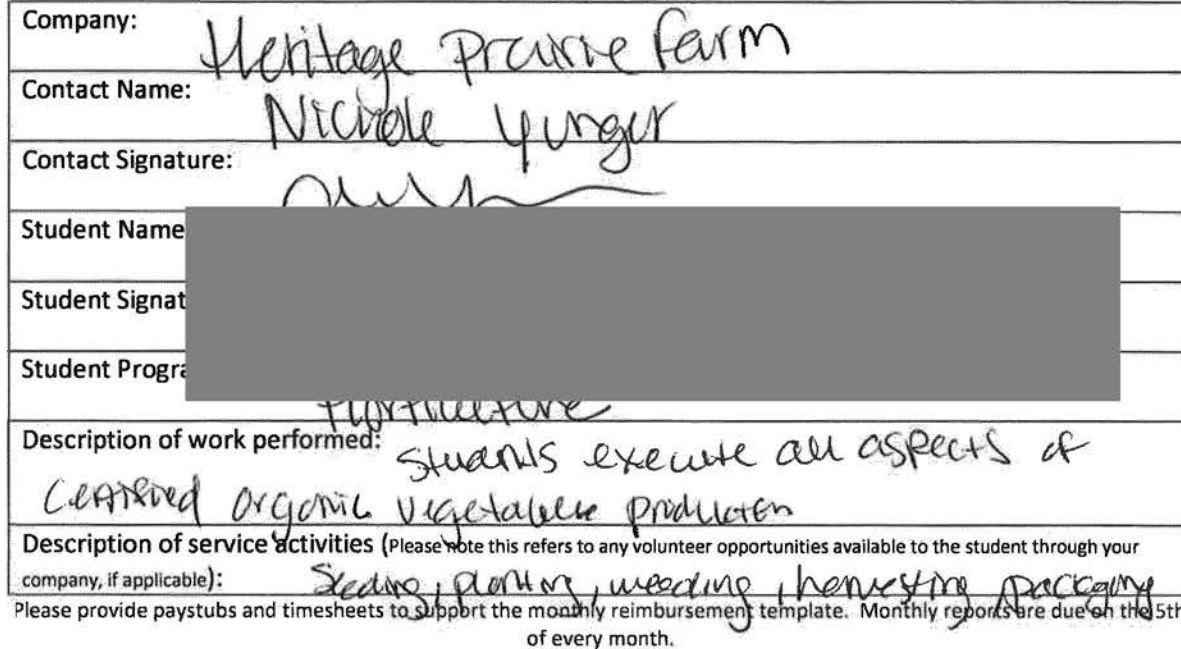 Company: Heritage Prairie farm
Contact Name: Nichole Yunger
Contact Signature:
Student Name
Student Signat
Student Progra
Horticulture
Description of work performed: Students execute all aspects of
Certified organic vegetable production
Description of service activities (Please note this refers to any volunteer opportunities available to the student through your
company, if applicable): Seeding, planting, weeding, harvesting packaging
Please provide paystubs and timesheets to support the monthly reimbursement template. Monthly reports are due on the 5th
of every month.